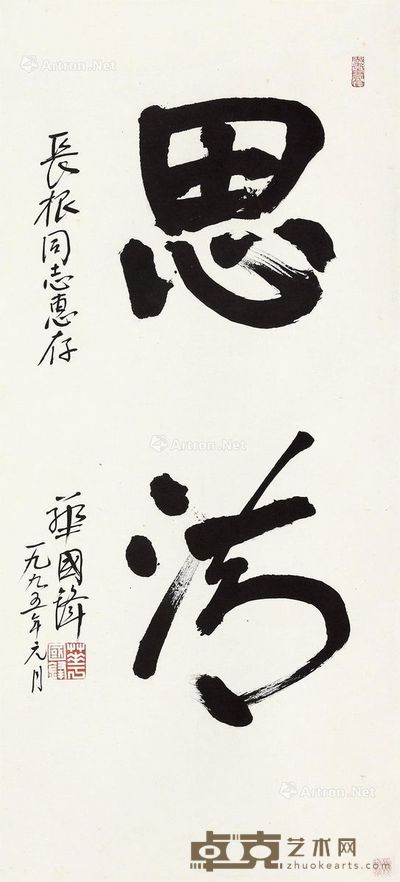 思
長根同志惠存
華國鋒
一九九五年元月
Artron.Net
Artron.Net
Artron.Net
Artron.Net
卓克艺术网
www.zhuokearts.com